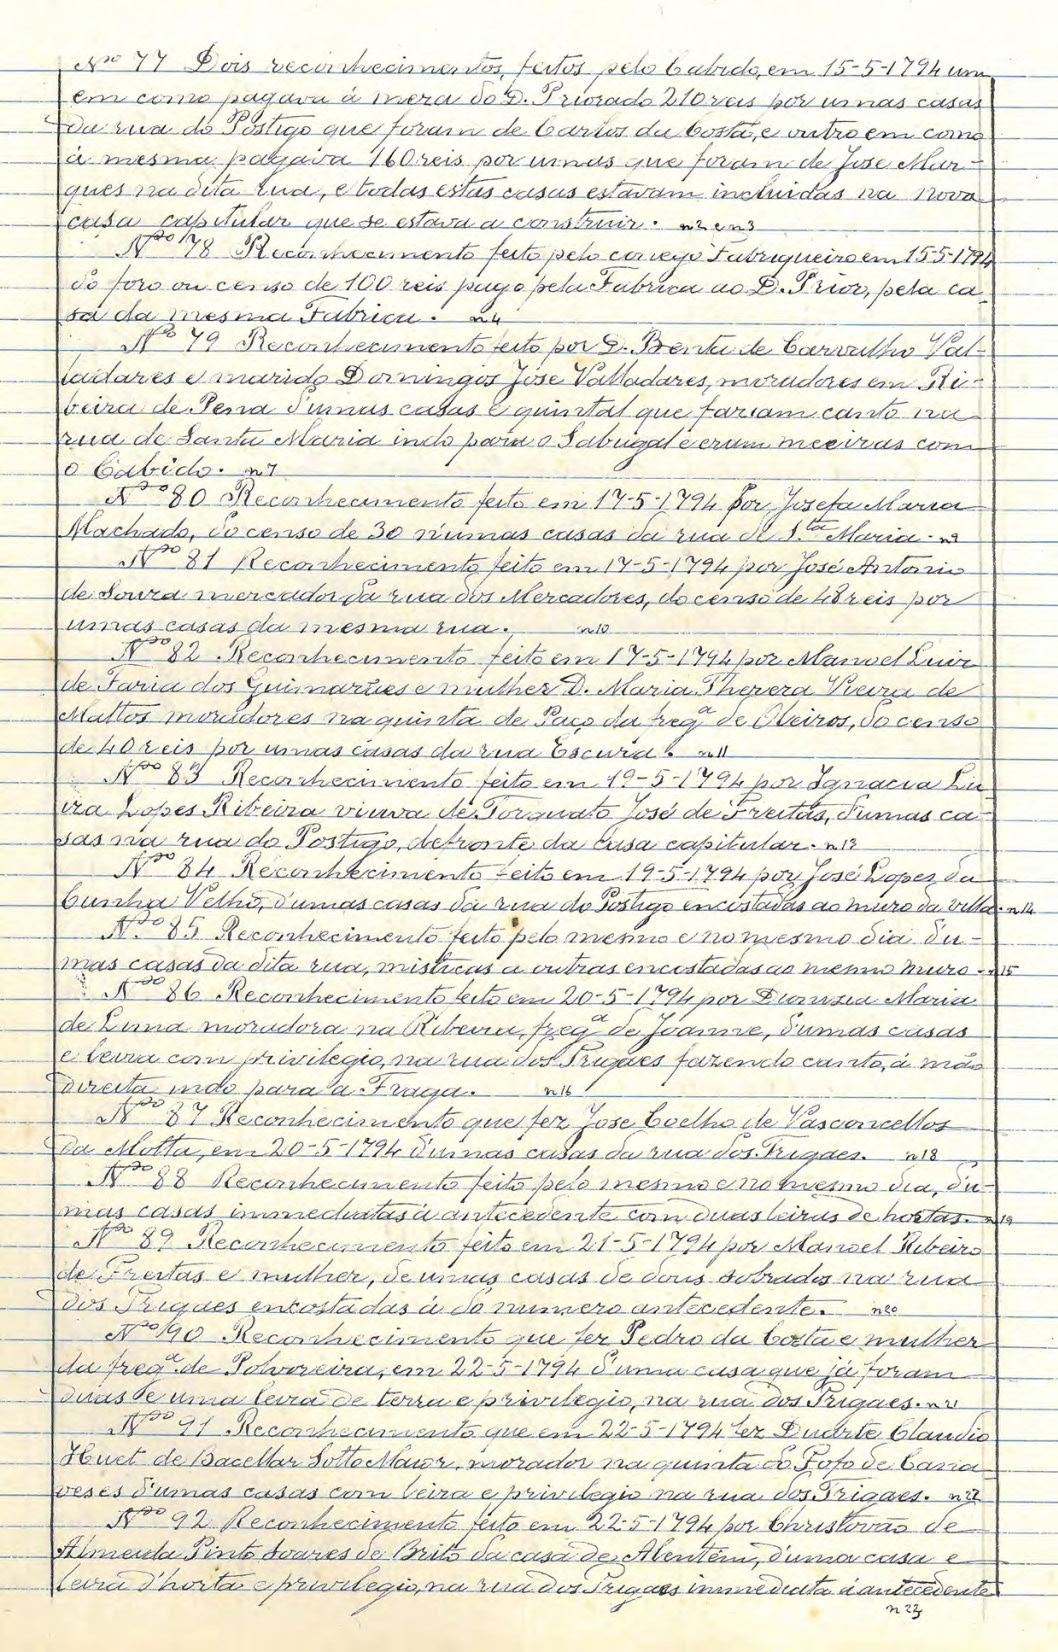 Nº 77 Dois reconhecimentos, feitos pelo Cabido, em 15-5-1794 um
em como pagava á meza do D. Priorado 210 reis por umas casas
da rua do Postigo que foram de Carlos da Costa, e outro em como
á mesma pagava 160 reis por umas que foram de José Mar-
ques na dita rua, e todas estas casas estavam incluidas na nova
casa capitular que se estava a construir. n2 e n3
Nº 78 Reconhecimento feito pelo conego Fabriqueiro em 15-5-1794
do foro ou censo de 100 reis pago pela Fabrica ao D. Prior, pela ca
sa da mesma Fabrica. n4
Nº 79 Reconhecimento feito por D. Benta de Carvalho Val-
ladares e marido Domingos José Valladares, moradores em Ri-
beira de Pena d'umas casas e quintal que faziam canto na
rua de Santa Maria indo para o Sabugal e eram meeiras com
o Cabido. n7
Nº 80 Reconhecimento feito em 17-5-1794 por Josefa Maria
Machado, do censo de 30 n'umas casas da rua de S.ta Maria. n9
Nº 81 Reconhecimento feito em 17-5-1794 por José Antonio
de Souza mercador da rua dos Mercadores, do censo de 48 reis por
umas casas da mesma rua. n10
Nº 82 Reconhecimento feito em 17-5-1794 por Manoel Luiz
de Faria dos Guimarães e mulher D. Maria Thereza Vieira de
Mattos moradores na quinta de Paço da freg.ª de Oleiros, do censo
de 40 reis por umas casas da rua Escura. n11
Nº 83 Reconhecimento feito em 19-5-1794 por Ignacia Lu
iza Lopes Ribeira viuva de Torquato José de Freitas, d'umas ca-
sas na rua do Postigo, defronte da casa capitular. n13
Nº 84 Reconhecimento feito em 19-5-1794 por José Lopes da
Cunha Velho, d'umas casas da rua do Postigo encostadas ao muro da villa. n14
Nº 85 Reconhecimento feito pelo mesmo e no mesmo dia du-
mas casas da dita rua, misticas a outras encostadas ao mesmo muro. n15
Nº 86 Reconhecimento feito em 20-5-1794 por Dionizia Maria
de Lima moradora na Ribeira, freg.ª de Joanne, d'umas casas
e leira com privilegio, na rua dos Trigaes fazendo canto, á mão
direita indo para a Fraga. n16
Nº 87 Reconhecimento que fez José Coelho de Vasconcellos
da Motta, em 20-5-1794 d'umas casas da rua dos Trigaes. n18
Nº 88 Reconhecimento feito pelo mesmo e no mesmo dia, du-
mas casas immediatas á antecedente com duas leiras de hortas. n19
Nº 89 Reconhecimento feito em 21-5-1794 por Manoel Ribeiro
de Freitas e mulher, de umas casas de dous sobrados na rua
dos Trigaes encostadas á do numero antecedente. n20
Nº 90 Reconhecimento que fez Pedro da Costa e mulher
da freg.ª de Polvoreira, em 22-5-1794 d'uma casa que já foram
duas e uma leira de terra e privilegio, na rua dos Trigaes. n21
Nº 91 Reconhecimento que em 22-5-1794 fez Duarte Claudio
Huet de Bacellar Sotto Maior, morador na quinta do Fofo de Cana
veses d'umas casas com leira e privilegio na rua dos Trigaes. n22
Nº 92 Reconhecimento feito em 22-5-1794 por Christovão de
Almeida Pinto Soares de Brito da casa de Abentem, d'uma casa e
leira d'horta e privilegio, na rua dos Trigaes immediata á antecedente
n 23